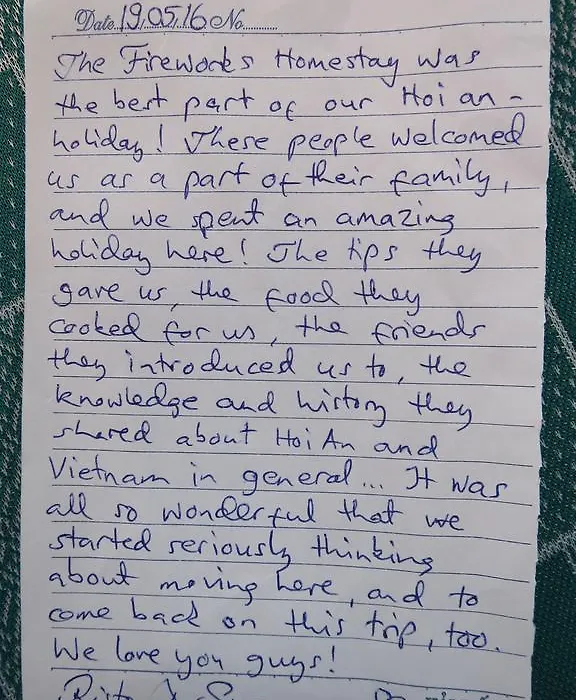 Date 19.05.16 No.
The Fireworks Homestay was
the best part of our Hoi an -
holiday! These people welcomed
us as a part of their family,
and we spent an amazing
holiday here! The tips they
gave us, the food they
cooked for us, the friends
they introduced us to, the
knowledge and history they
shared about Hoi An and
Vietnam in general... It was
all so wonderful that we
started seriously thinking
about moving here, and to
come back on this trip, too.
We love you guys!